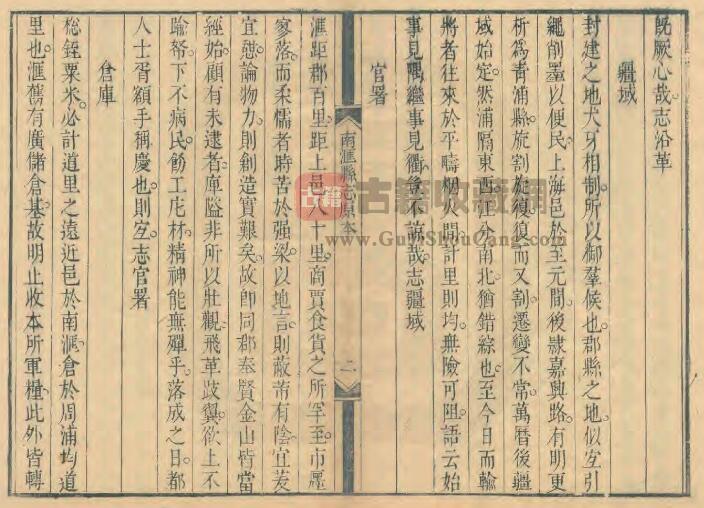 既厥心哉志沿革
疆域
封建之地犬牙相制所以御羣候也郡縣之地似宜引
繩削墨以便民上海邑於至元間後隸嘉興路有明更
析爲青浦縣旋割旋復復而又割遷變不常萬曆後疆
域始定然浦隔東西江分南北猶錯綜也至今日而輪
將者往來於平疇烟火間計里則均無險可阻語云始
事見隅繼事見衢豈不諒哉志疆域
官署
南滙縣志原本
二
滙距郡百里距上邑八十里商賈食貨之所罕至市廛
寥落而柔懦者時苦於强梁以地言則蔽芾有陰宜茇
宜憩論物力則創造實艱矣故即同郡奉賢金山皆當
經始顧有未逮者庫隘非所以壯觀飛革跂翼欲上不
踰帑下不病民飭工庀材精神能無殫乎落成之日都
人士胥額手稱慶也則宜志官署
倉庫
總銍粟米必計道里之遠近邑於南滙倉於周浦均道
里也滙舊有廣儲倉基故明止收本所軍糧此外皆轉
古籍
古籍收藏網
www.GuJiShouCang.com